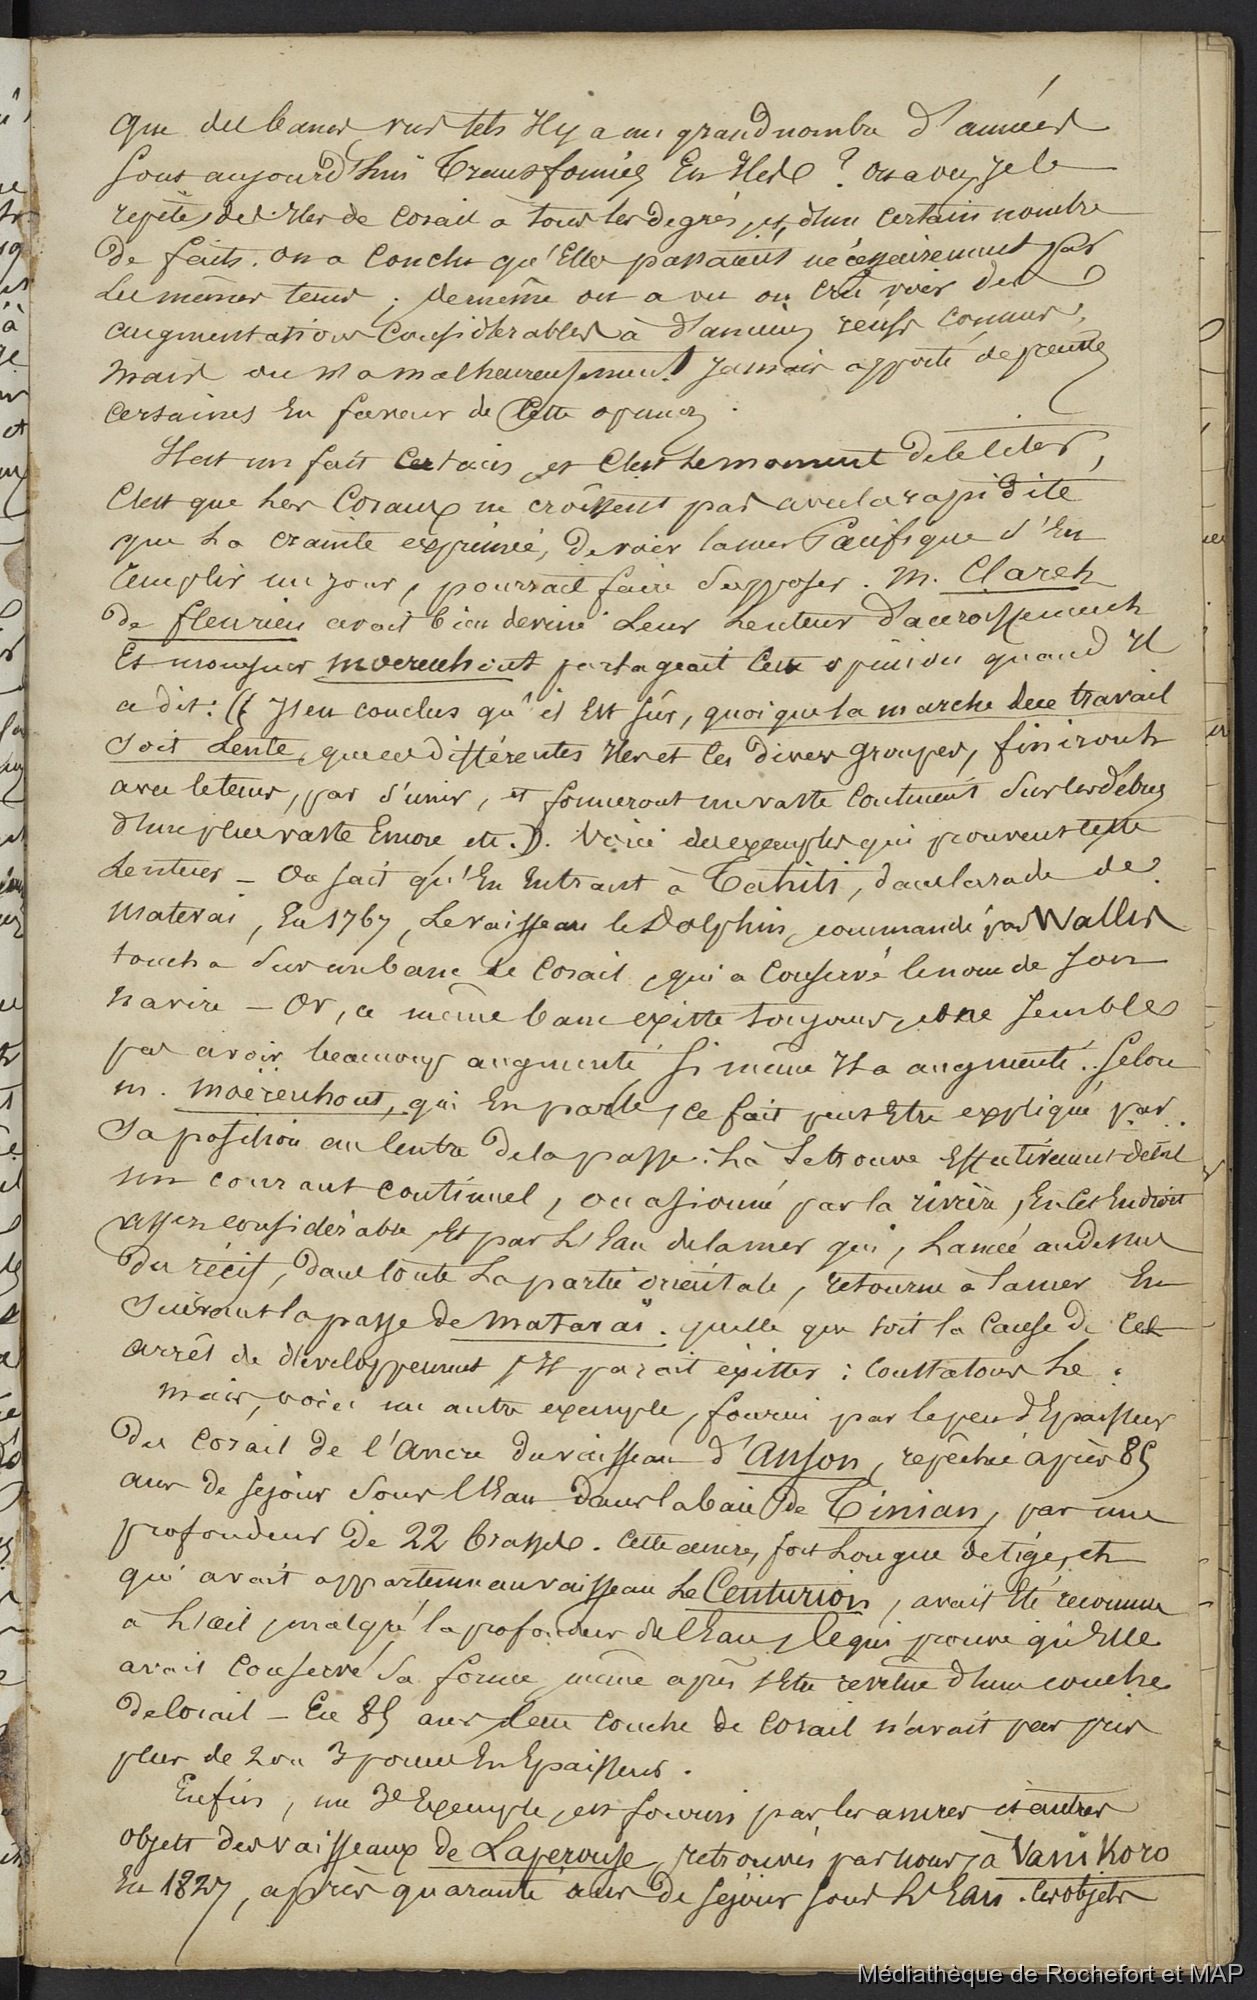 que des bancs vus tels il y a un grand nombre d'années
sont aujourd'hui transformés En Iles ? on a vu, je le
repète, des Iles de Corail à tous les degrés, et, d'un certain nombre
de faits. on a Conclu qu'Elles passaient nécessairement par
les mêmes tems ; demême on a vu ou crû voir des
augmentations Considérables à d'anciens récifs Connus ;
mais on n'a malheureusement jamais apporté de preuves
certaines En faveur de Cette opinion.
Il est un fait Certain, et C'est le moment de le citer,
C'est que les Coraux ne croissent pas avec la rapidité
que la crainte exprimée, de voir la mer Pacifique s'En
Emplir un jour, pourrait faire supposer. M. Claret
de fleurieu avait bien deviné leur lenteur d'accroissement
Et monsieur moerenhout partageait Cette opinion quand Il
a dit : (( J'en conclus qu'il Est sûr, quoique la marche dece travail
soit Lente, que ces différentes Iles et Ces divers Groupes, finiront
avec le tems, par s'unir, et formeront un vaste Continent sur les débris
d'un plus vaste Encore, etc. )). Voici des exemples qui prouvent cette
Lenteur – On sait qu'En Entrant à Tahiti, dans la rade de
Matavai, En 1767, Le vaisseau le Dolphin, commandé par Wallis
toucha sur un banc de Corail, qui a Conservé le nom de son
navire – Or, ce même banc existe toujours, et ne semble
pas avoir beaucoup augmenté, si même Il a augmenté. Selon
m. moërenhout, qui En parle, ce fait peut Etre expliqué par
sa position au Centre de la passe : Là se trouve Effectivement
un courant Continuel, occasionné par la rivière, En Cet Endroit
assez considérable, Et par L'Eau de la mer qui, Lancée au Dessus
du récif, dans toute La partie orientale, retourne à la mer En
suivant la passe de Matavaï. quelle que soit la Cause de Cet
arrêt de développement, Il parait éxister : Constatons Le.
mais, voici un autre exemple, fourni par le peu d'Epaisseur
du Corail de l'Ancre du vaisseau d'Anson, repêchée après 85
ans de séjour sous l'Eau dans la baie de Tinian, par une
profondeur de 22 brasses. Cette ancre, fort Longue de tige, et
qui avait appartenu au vaisseau Le Centurion, avait Eté reconnue
à L'œil, malgré la profondeur de l'Eau, Ce qui prouve qu'Elle
avait Conservé sa forme, même après s'Etre revêtue d'une couche
de Corail – En 85 ans, Cette Couche de Corail n'avait pas pris
plus de 2 ou 3 pouces En Epaisseur.
Enfin, un 3e Exemple, est fourni par les ancres et autres
objets des vaisseaux de Laperouse, retrouvés par nous, à Vanikoro
En 1827, après quarante ans de séjour sous L'Eau. Ces objets
Médiathèque de Rochefort et MAP